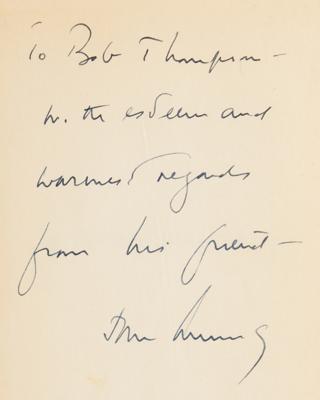 To Bob Thompson —
with esteem and
warmest regards
from his friend —